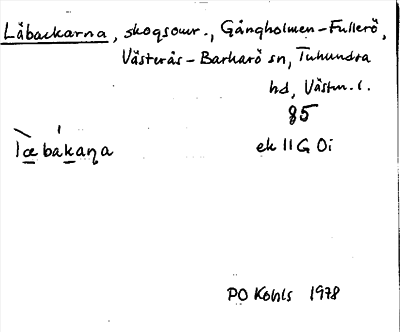 Låbackarna, skogsomr., Gångholmen-Fullerö,
Västerås-Barkarö sn, Tuhundra
hd, Västm. l.
85
ek 11G 0i
lœbakaṇa
PO Kohls 1978